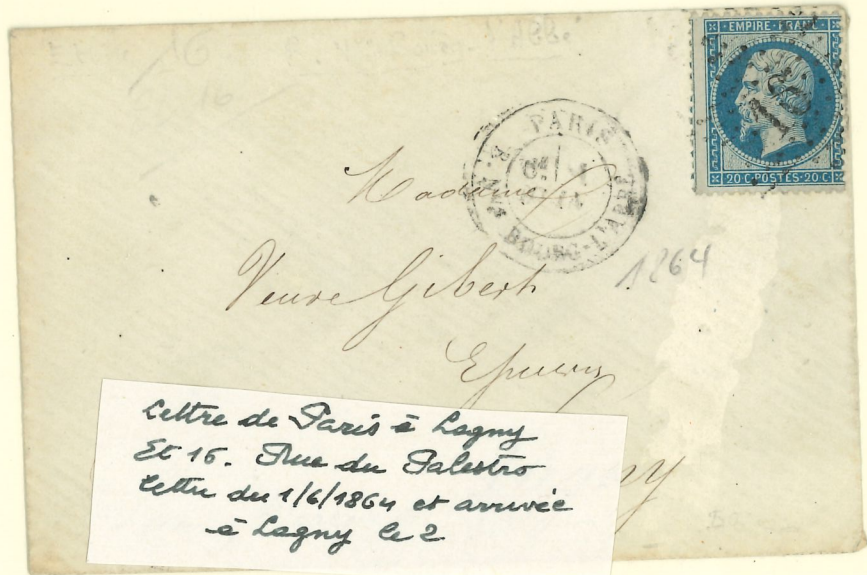 EMPIRE FRANC
20 C POSTES 20 C
PARIS
R. N
BOURG-L'ABBÉ
Madame
1864
Veuve Gibert
Lettre de Paris à Lagny
Et 16. Rue du Palestro
Lettre du 1/6/1864 et arrivée
à Lagny le 2